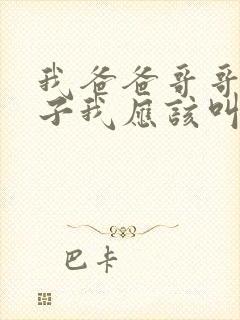 我爸爸哥哥
子我应该叫
巴卡